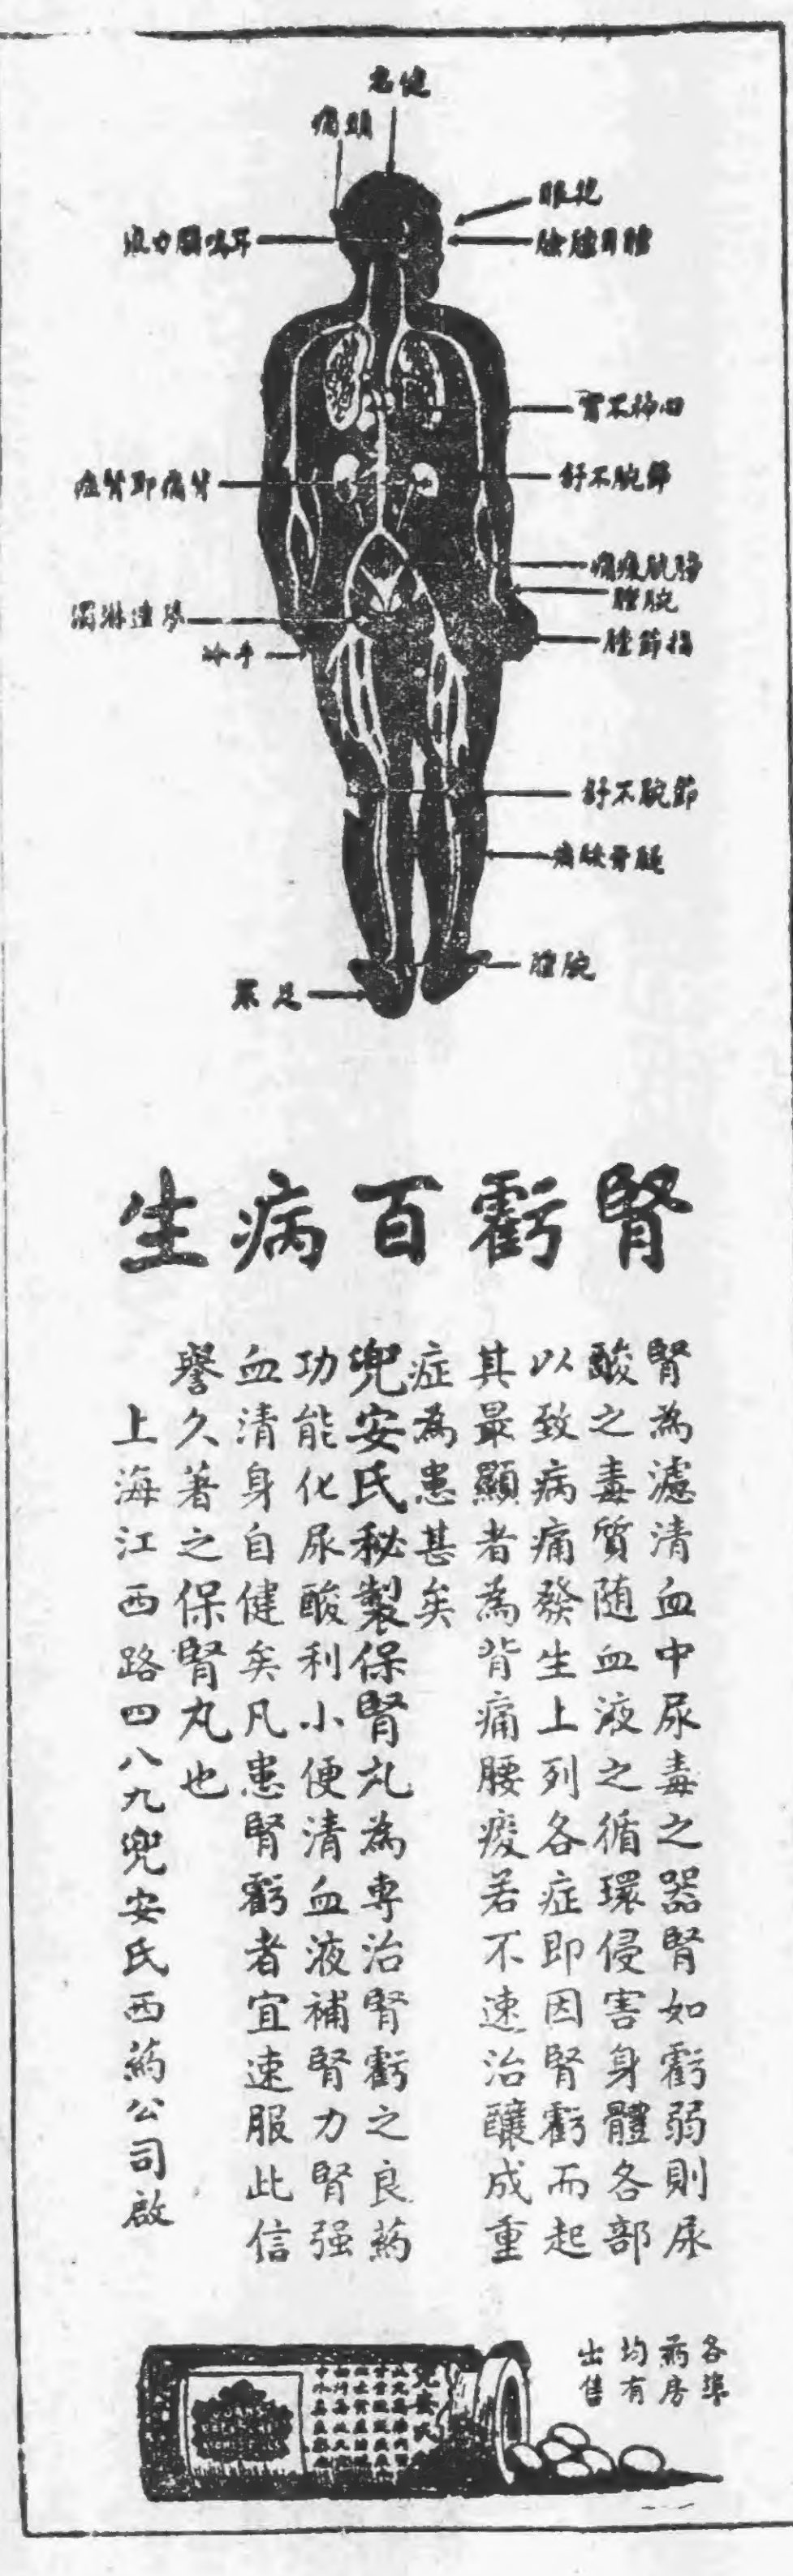 頭痛
眼花
耳鳴腦力衰
心神不寧
節腕不舒
背痛即腎症
膀胱痠痛
腕腫
夢遺淋濁
指節腫
手冷
節腕不舒
腿骨酸痛
腕腫
足
腎虧百病生
腎為濾清血中尿毒之器腎如虧弱則尿
酸之毒質随血液之循環侵害身體各部
以致病痛發生上列各症即因腎虧而起
其最顯者為背痛腰痠若不速治釀成重
症為患甚矣
兜安氏秘製保腎丸為専治腎虧之良葯
功能化尿酸利小便清血液補腎力腎强
血清身自健矣凡患腎虧者宜速服此信
譽久著之保腎丸也
上海江西路四八九兜安氏西葯公司啟
各埠
葯房
均有
出售
兜安氏